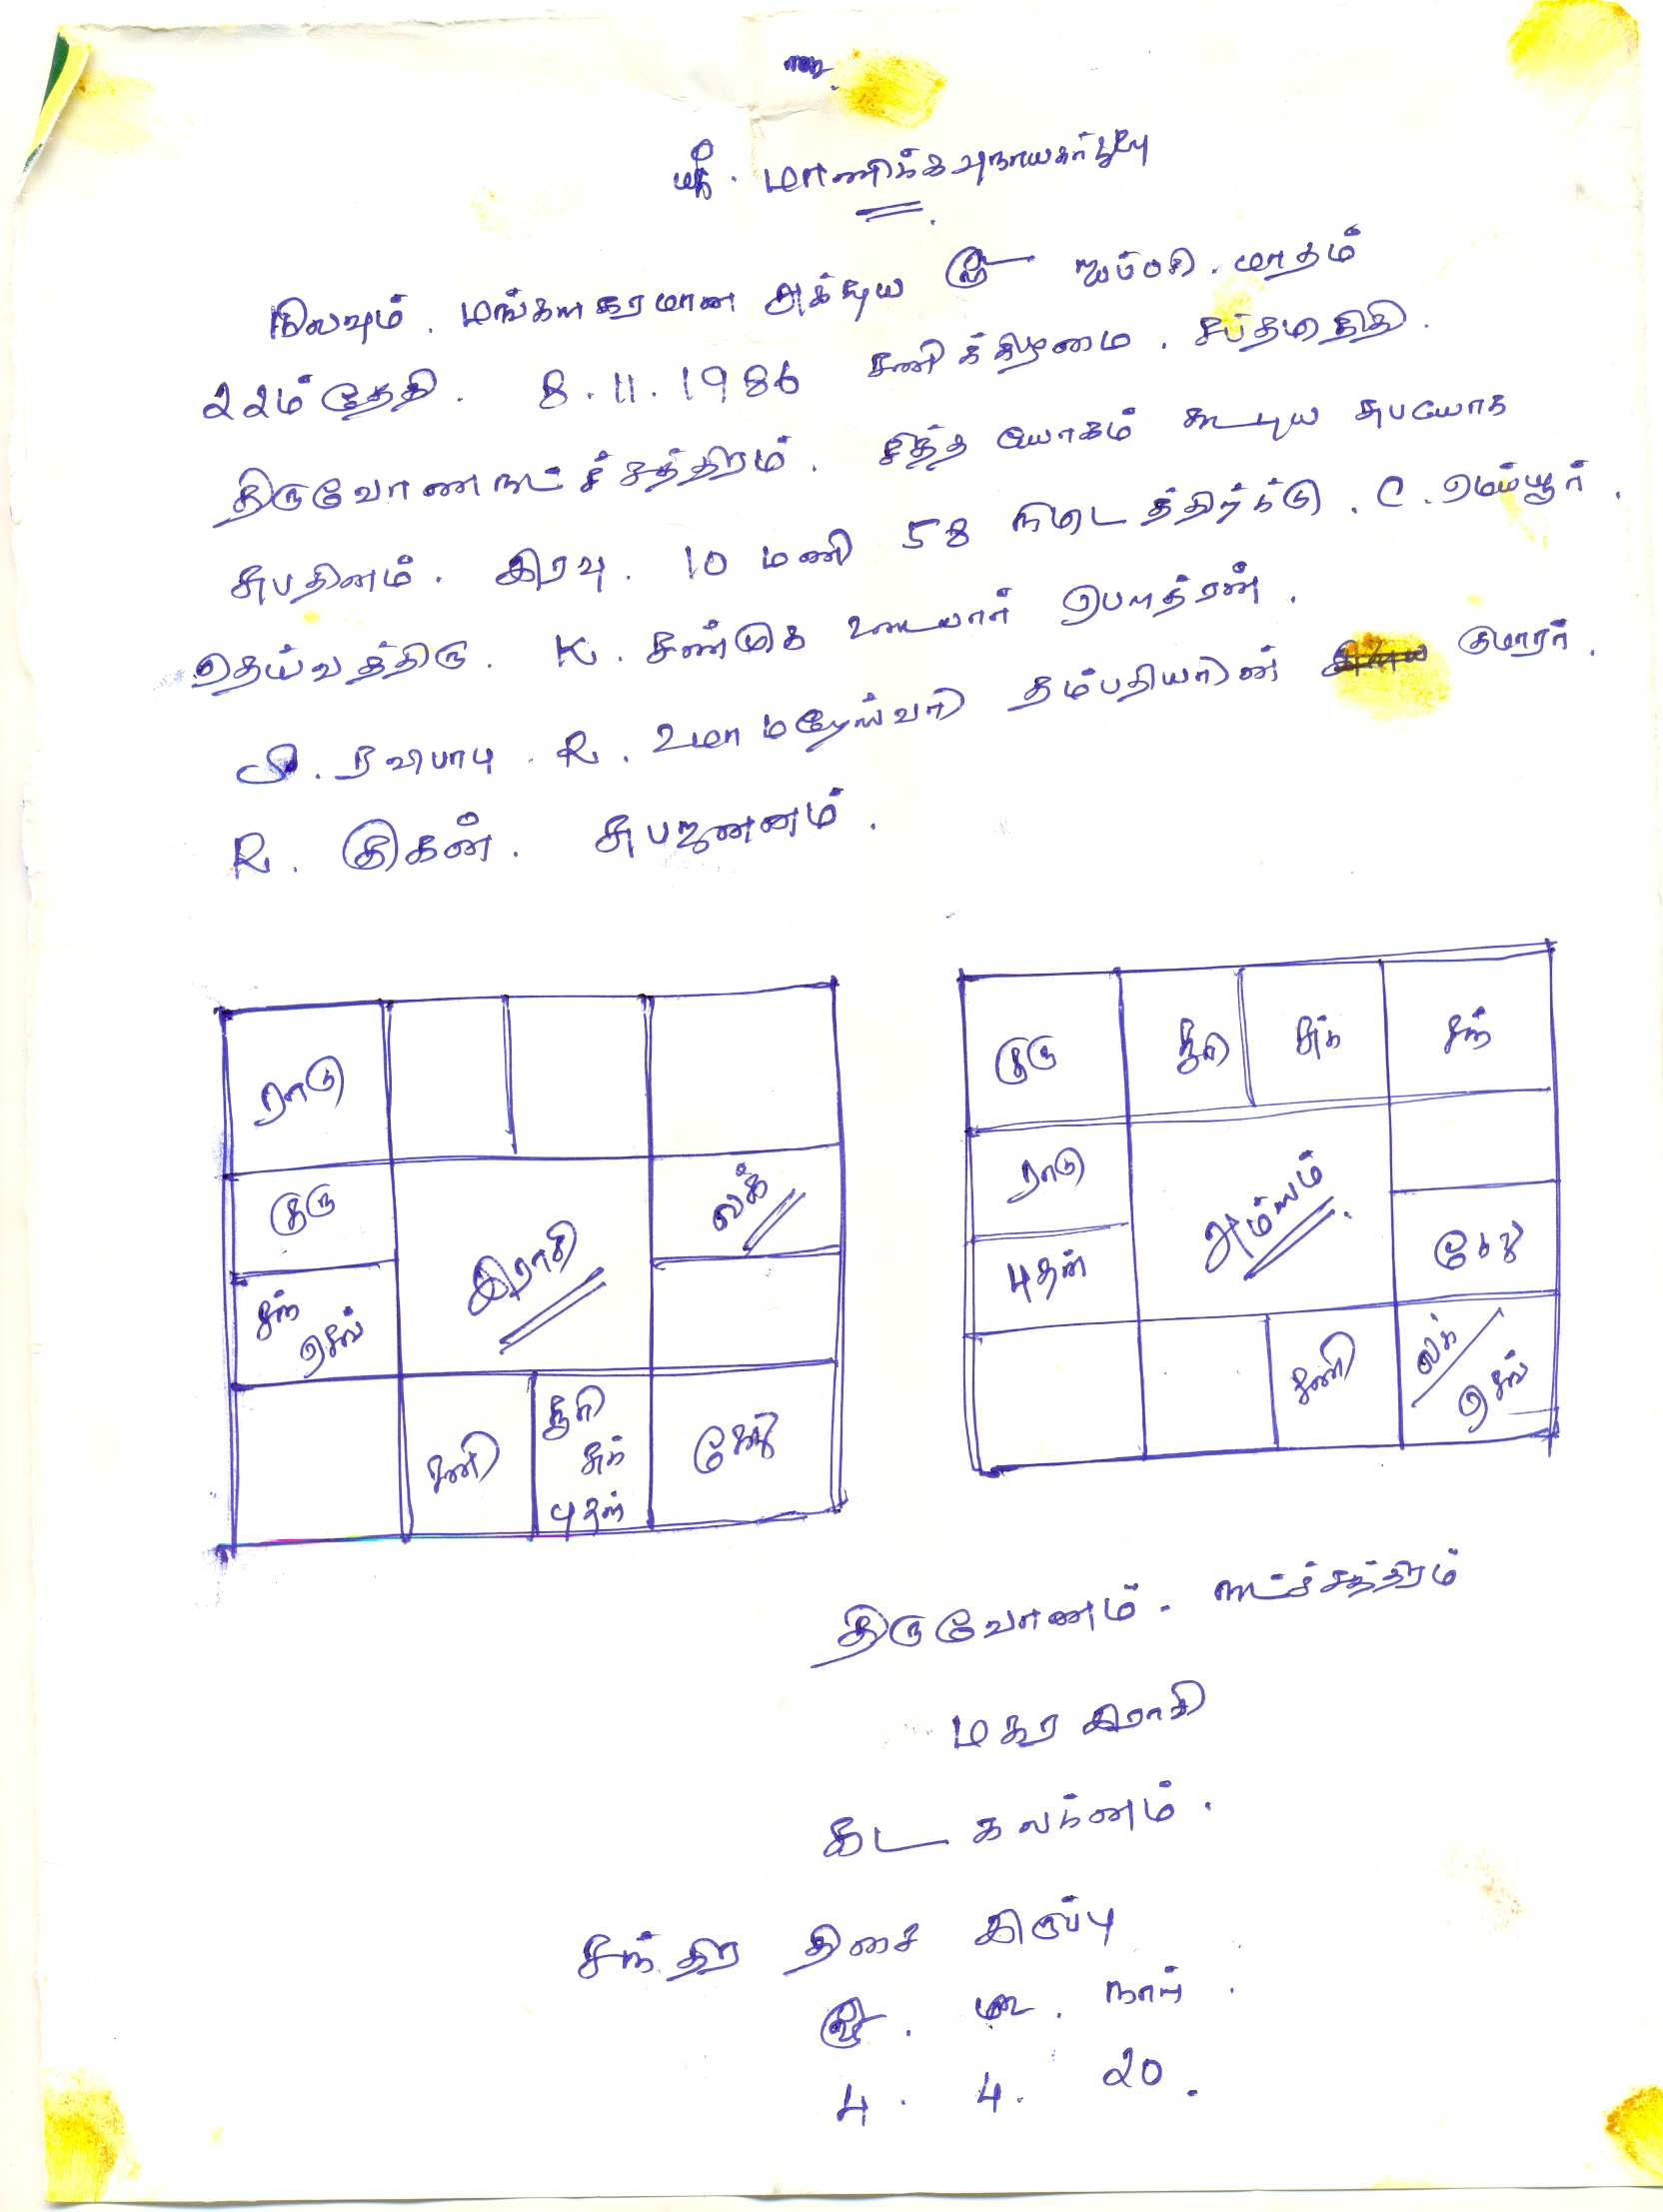 ஸ்ரீ. மாணிக்கவிநாயகர் துணை
நிலவும். மங்களகரமான அக்ஷய ௵ ஐப்பசி. மாதம்
22ம்தேதி. 8.11.1986 சனிக்கிழமை. சப்தமிதிதி.
திருவோணநட்ச்சத்திரம். சித்த யோகம் கூடிய சுபயோக
சுபதினம். இரவு. 10 மணி 58 நிமிடத்திற்க்கு. C.
தெய்வத்திரு. K. சண்முக உடையார் பௌத்ரன்.
ரவிபாபு. R. உமாமஹேஸ்வரி தம்பதியரின் குமாரர்.
R. சுபஜனனம்.
ராகு
குரு
சந் செவ்
இராசி
லக்
சனி
சூரி சுக் புதன்
கேது
குரு
சூரி
சுக்
சந்
ராகு
புதன்
அம்ஸம்
கேது
சனி
லக் செவ்
திருவோணம். நட்ச்சத்திரம்
மகர இராசி
கடகலக்னம்.
சந்திர திசை இருப்பு
௵. ௴. நாள்.
4. 4. 20.